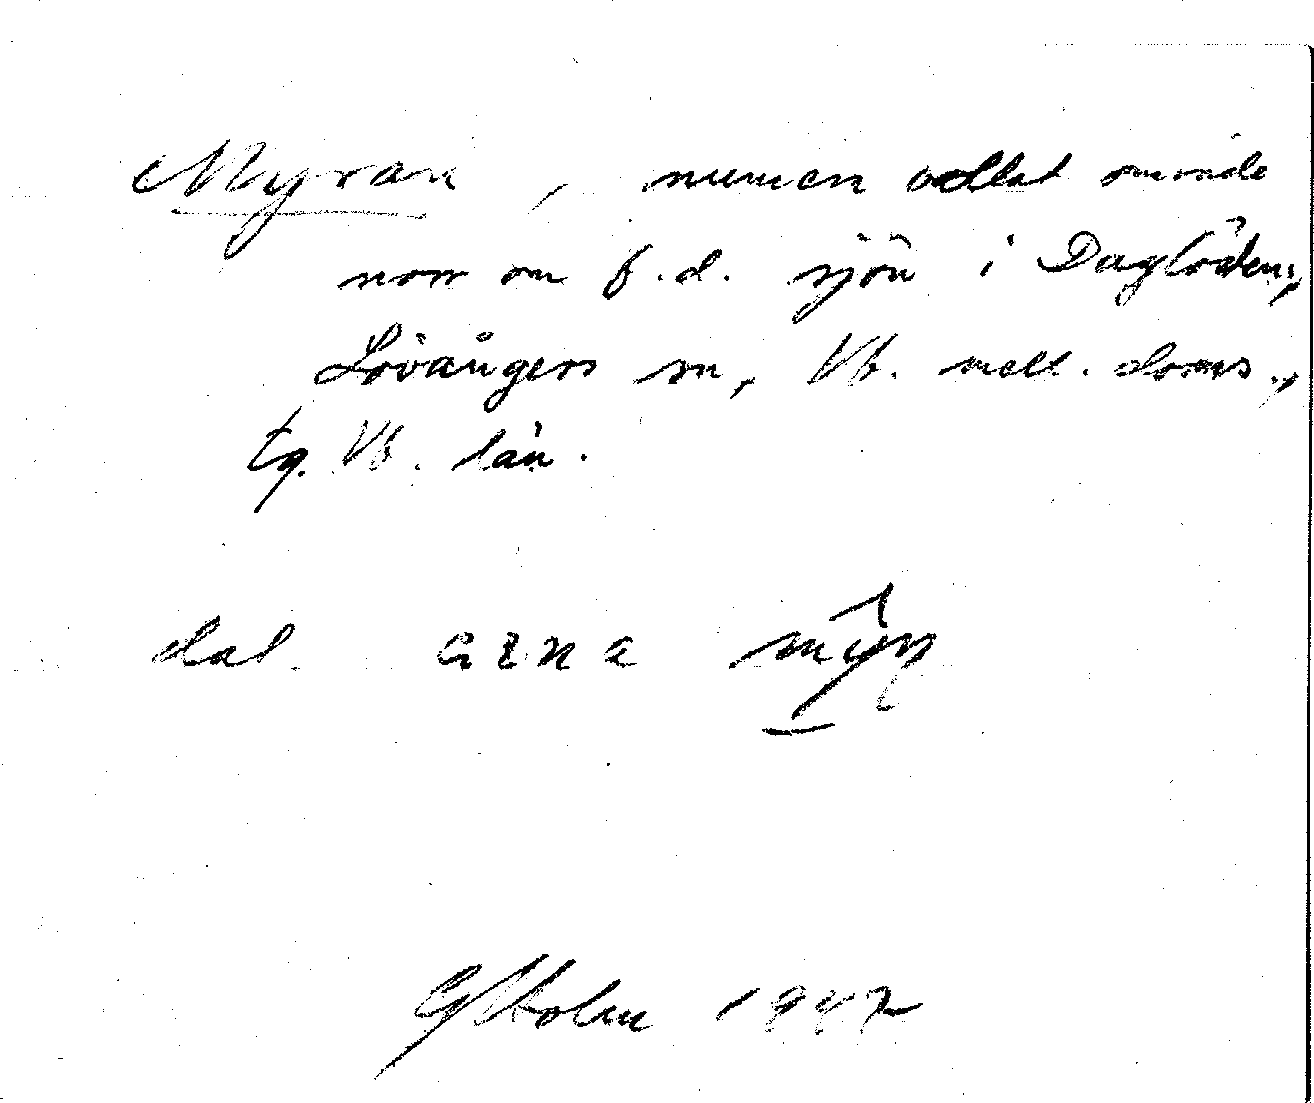 Myran, numera odlat område
norr om f.d. sjön i Daglösten,
Lövångers sn, Vb. mell. doms.,
tg. Vb. län.
dat.
GHolm 1947